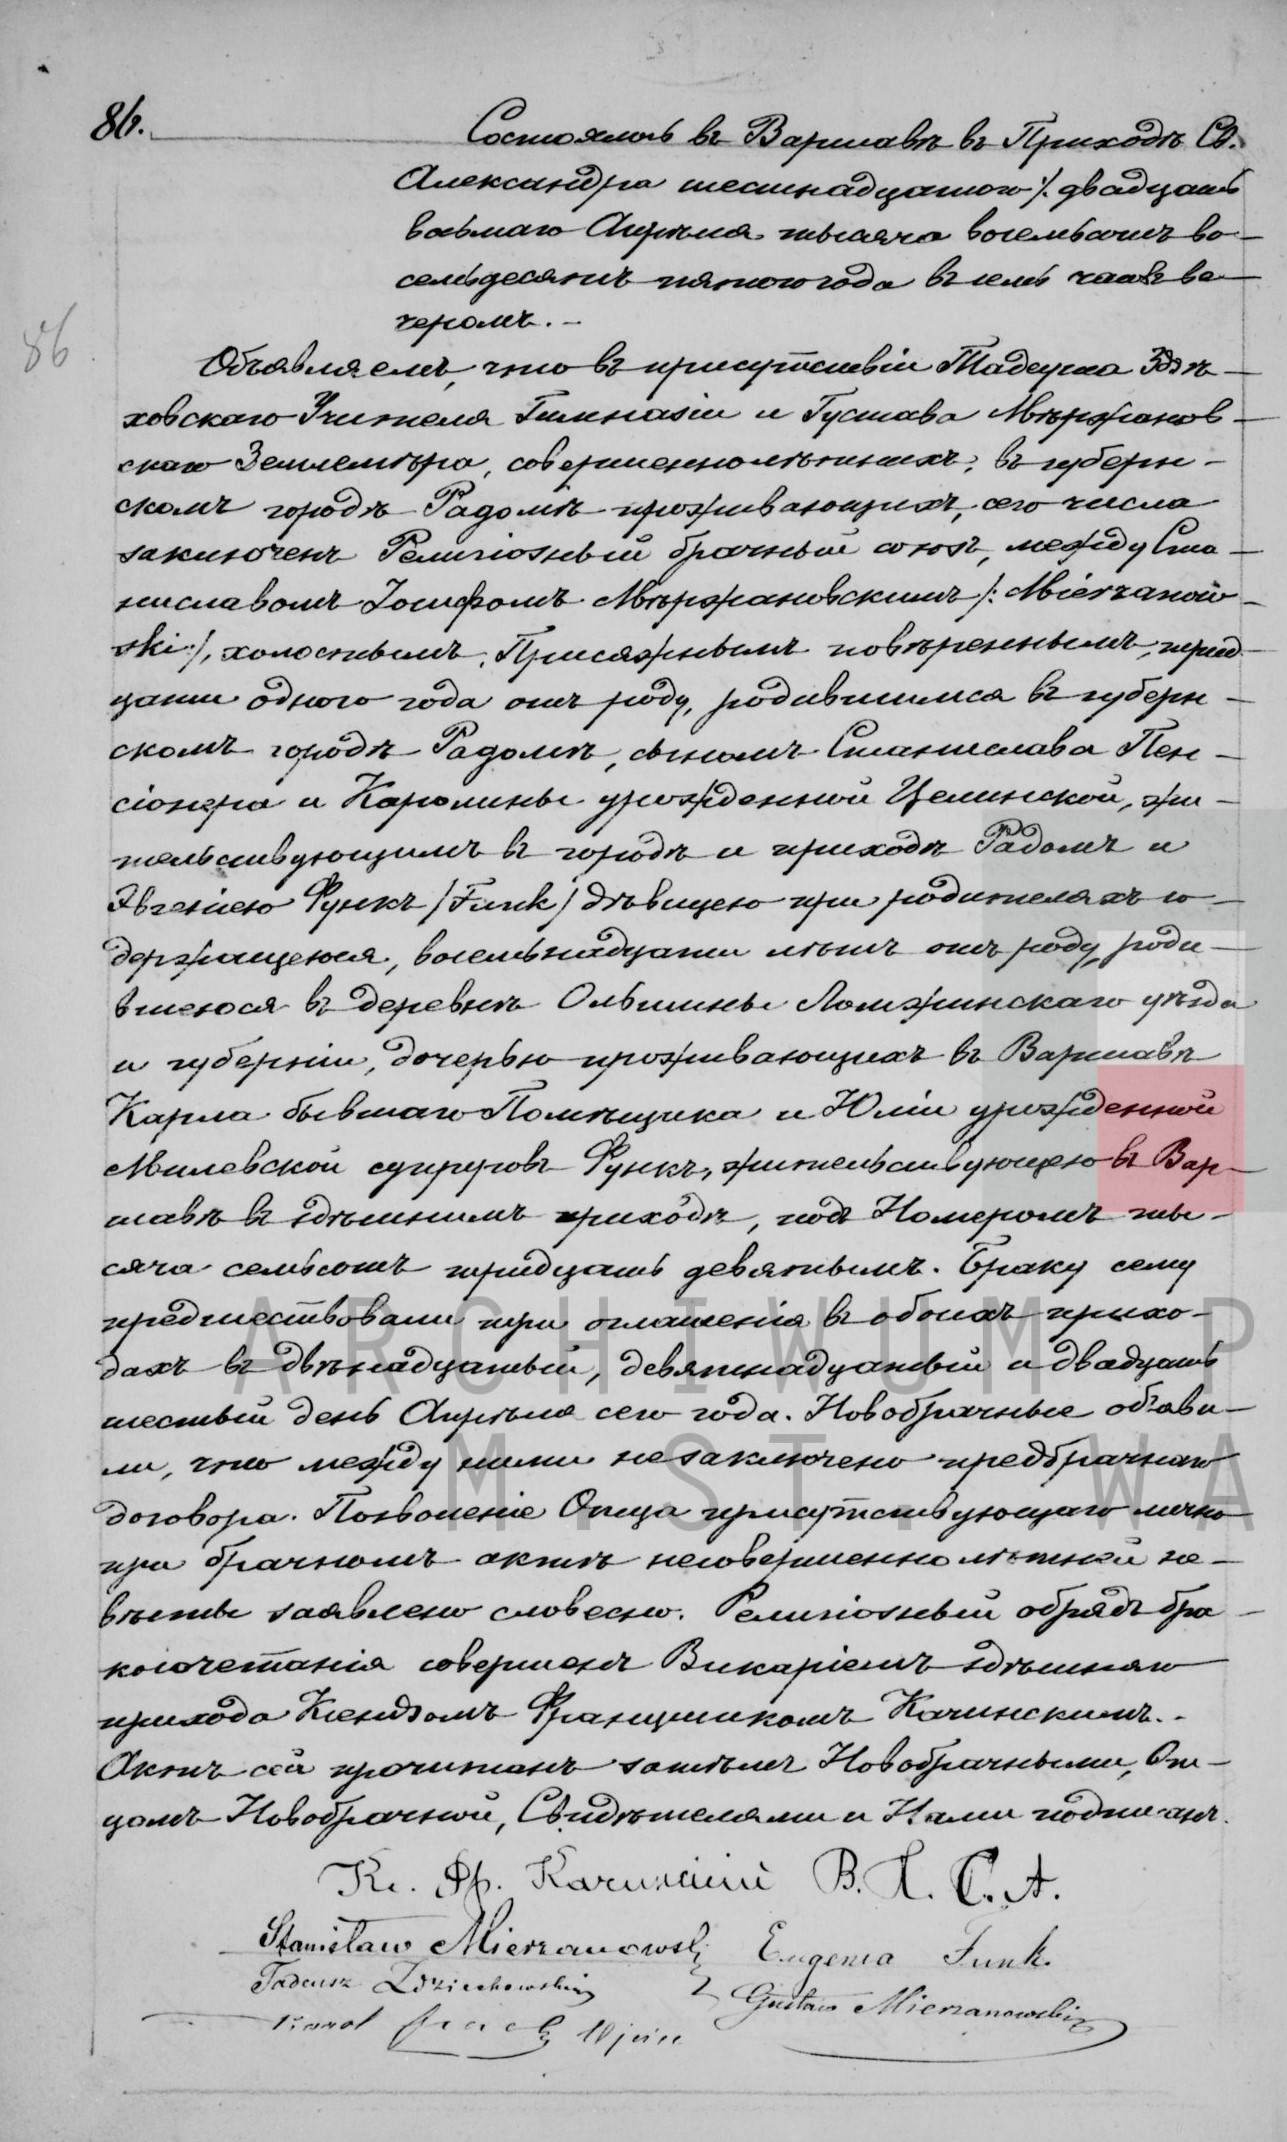 86.
Состоялось въ Варшавѣ въ Приходѣ Св.
Александра шестнадцатого /: двадцать
восьмаго Апрѣля тысяча восемьсотъ во-
семьдесятъ пятого года въ семь часовъ ве-
черомъ.-
86
Объявляемъ, что въ присутствіи Тадеуша Здзѣ-
ховскаго Учителя Гимназіи и Густава Мѣржанов-
скаго Землемѣра, совершеннолѣтнихъ, въ губерн-
скомъ городѣ Радомѣ проживающихъ, сего числа
заключенъ Религіозный брачный союзъ, между Ста-
ниславомъ Іосифомъ Мѣржановскимъ /: Mierzanow-
ski:/, холостымъ, Присяжнымъ повѣреннымъ, трид-
цати одного года отъ роду, родившимся въ губерн-
скомъ городѣ Радомѣ, сыномъ Станислава Пен-
сіонера и Каролины урожденной Целинской, жи-
тельствующимъ въ городѣ и приходѣ Радомъ и
Эвгеніею Функъ /Funk/ дѣвицею при родителяхъ со-
держащеюся, восемьнадцати лѣтъ отъ роду, роди-
вшеюся въ деревнѣ Ольшины Ломжинскаго уѣзда
и губерніи, дочерью проживающихъ въ Варшавѣ
Карла бывшаго Помѣщика и Юліи урожденной
Милевской супруговъ Функъ, жительствующею въ Вар-
шавѣ въ здѣшнимъ приходѣ, подъ Номеромъ ты-
сяча семьсотъ тридцать девятымъ. Браку сему
предшествовали три оглашенія въ обоихъ прихо-
дахъ въ двѣнадцатый, девятнадцатый и двадцать
шестый день Апрѣля сего года. Новобрачные объяви-
ли, что между ними незаключено предбрачнаго
договора. Позволеніе Отца присутствующаго лично
при брачномъ актѣ несовершеннолѣтней не-
вѣсты заявлено словесно. Религіозный обрядъ бра-
косочетанія совершенъ Викаріемъ здѣшняго
прихода Ксендзомъ Францишкомъ Качинскимъ.-
Актъ сей прочитанъ затѣмъ Новобрачными, От-
цомъ Новобрачной, Свидѣтелями и Нами подписанъ.
Кс. Фр. Качинскій В. П. С. А.
Stanisław Mierzanowski Eugenia Funk
Tadeusz Zdziechowski Gustaw Mierzanowski
Karol
ARCHIWUM P
M. ST. WA